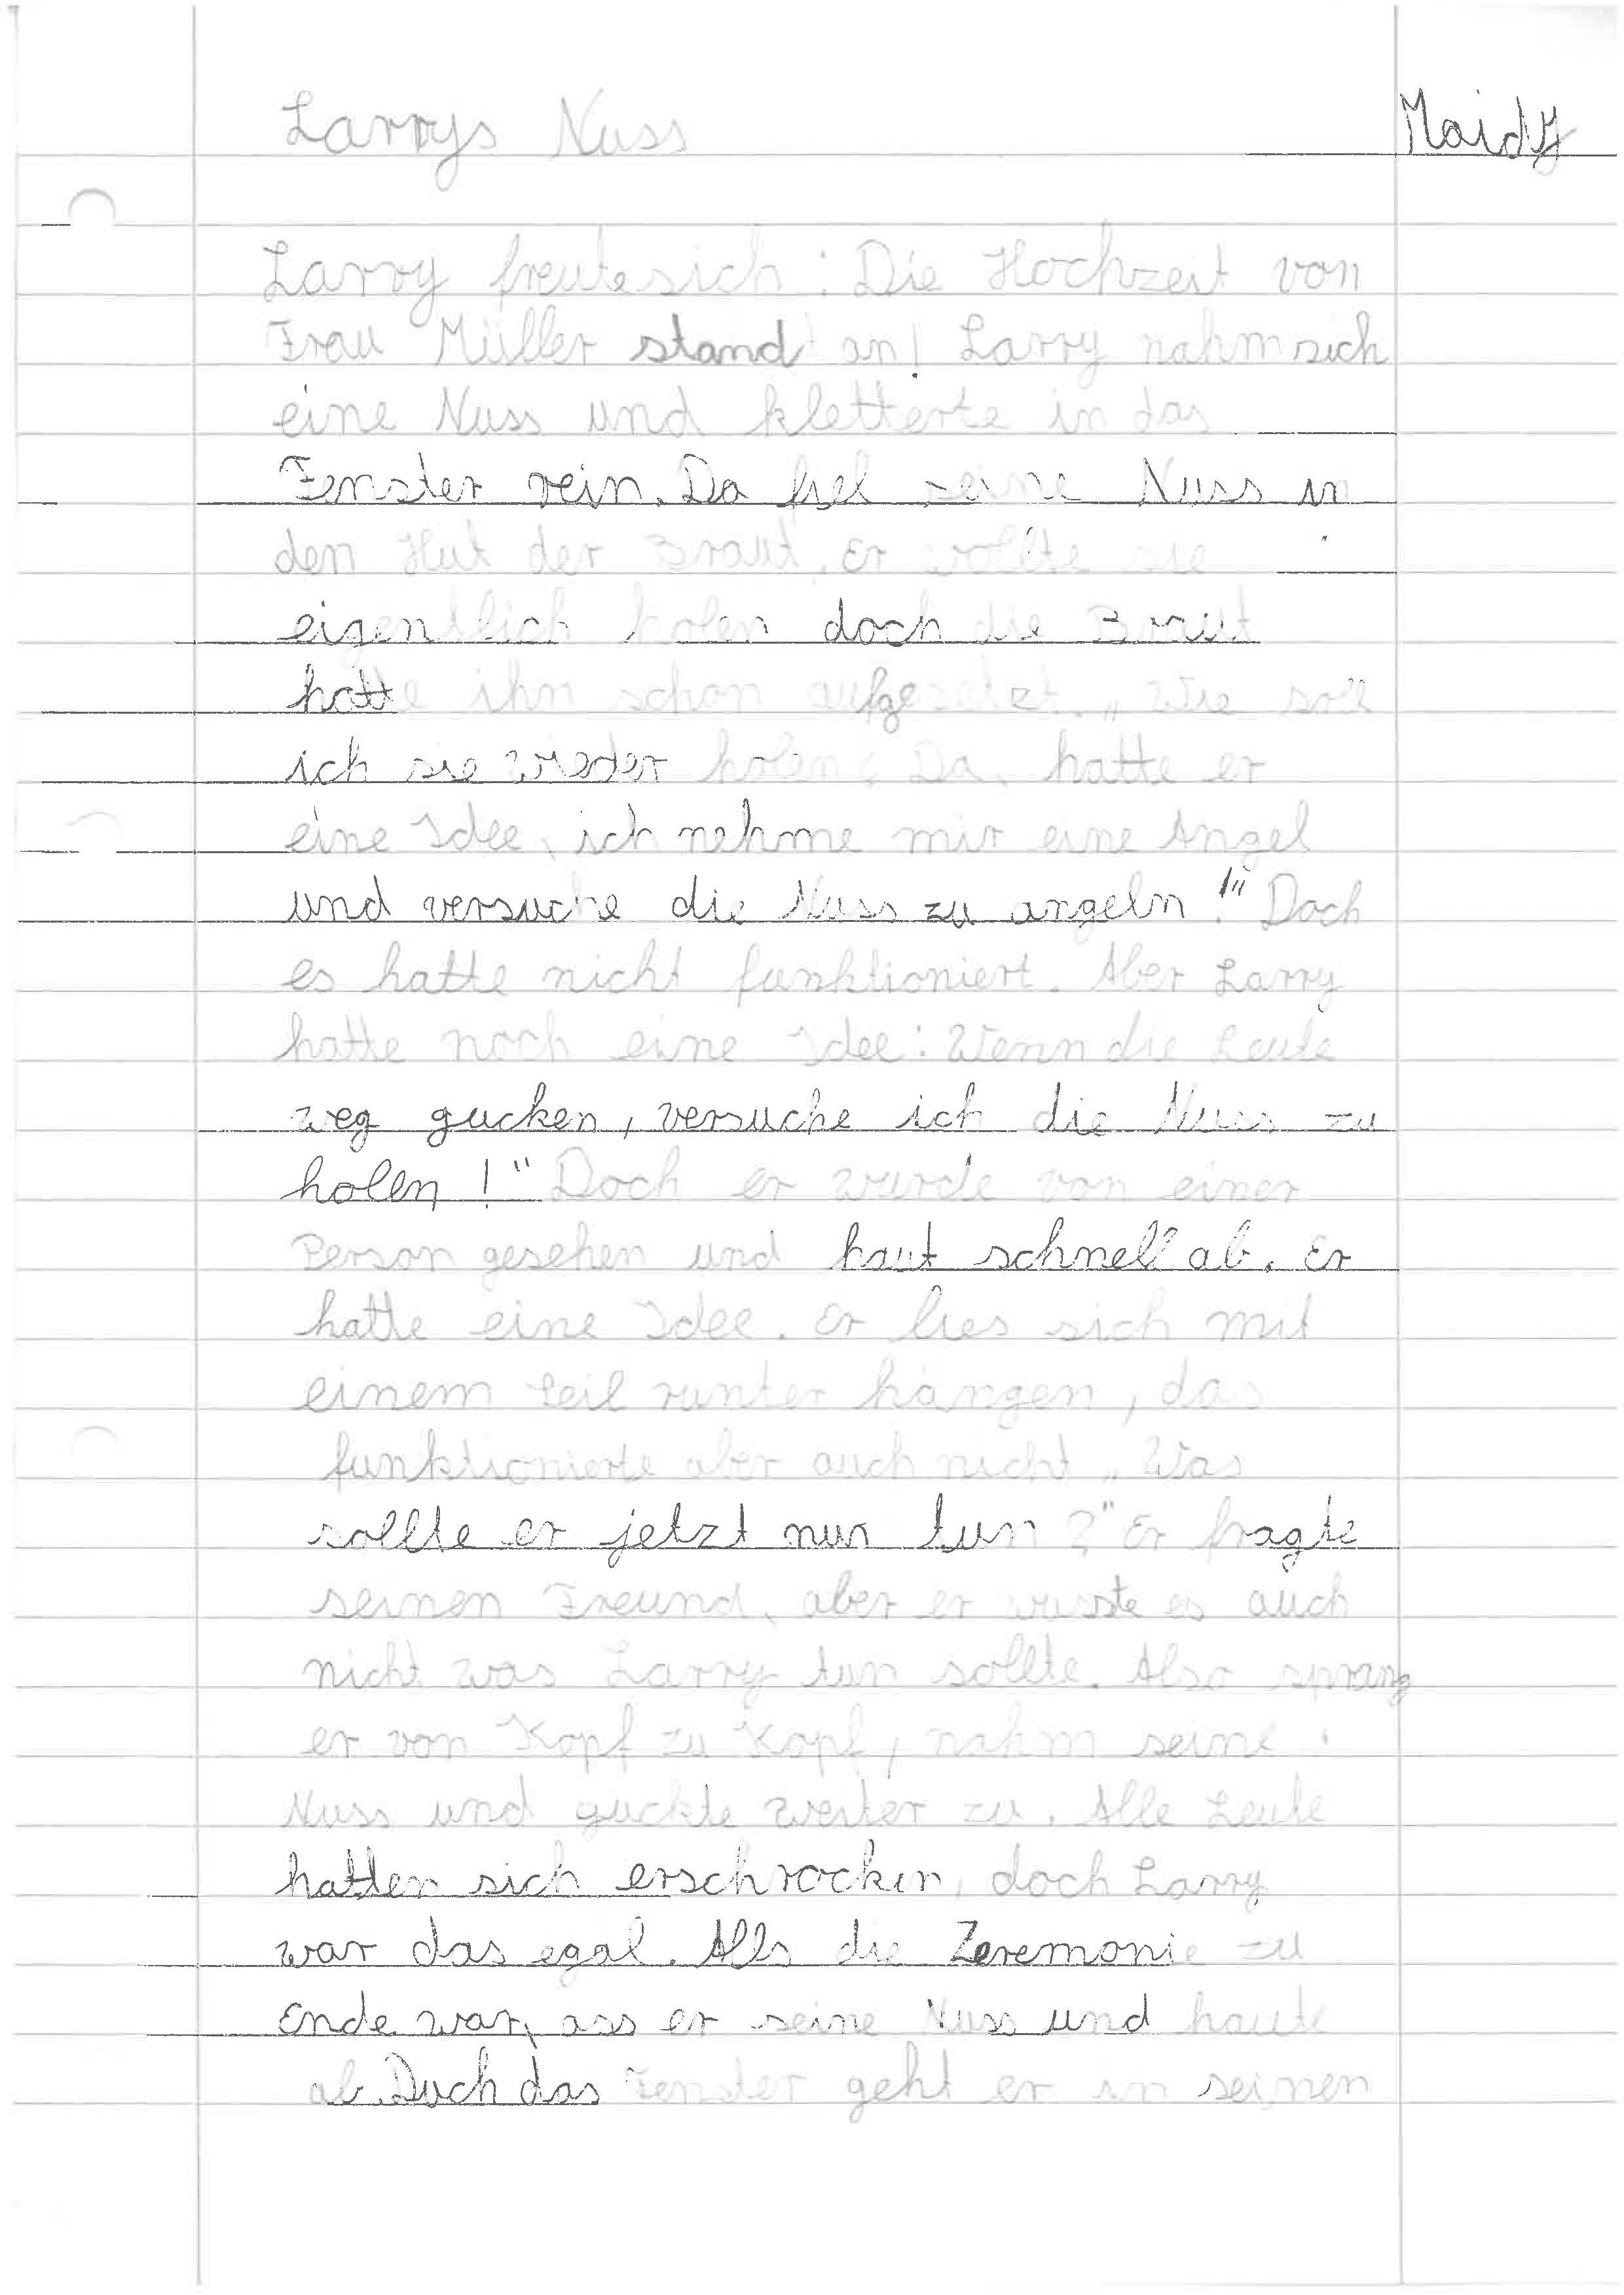 Larrys Nuss
Maidy
Larry freute sich: Die Hochzeit von
Frau Müller stand an! Larry nahm sich
eine Nuss und kletterte in das
Fenster rein. Da fiel seine Nuss in
den Hut der Braut. Er wollte sie
eigentlich holen doch die Braut
hatte ihn schon aufgesetzt. „Wie soll
ich sie wieder holen? Da hatte er
eine Idee, ich nehme mir eine Angel
und versuche die Nuss zu angeln!" Doch
es hatte nicht funktioniert. Aber Larry
hatte noch eine Idee: Wenn die Leute
weg gucken, versuche ich die Nuss zu
holen!" Doch er wurde von einer
Person gesehen und haut schnell ab. Er
hatte eine Idee. Er lies sich mit
einem Seil runter hängen, das
funktionierte aber auch nicht „Was
sollte er jetzt nur tun?" Er fragte
seinen Freund, aber er wusste es auch
nicht was Larry tun sollte. Also sprang
er von Kopf zu Kopf, nahm seine
Nuss und guckte weiter zu. Alle Leute
hatten sich erschrocken, doch Larry
war das egal. Alls die Zeremonie zu
Ende war, ass er seine Nuss und haute
ab. Duch das Fenster geht er in seinen